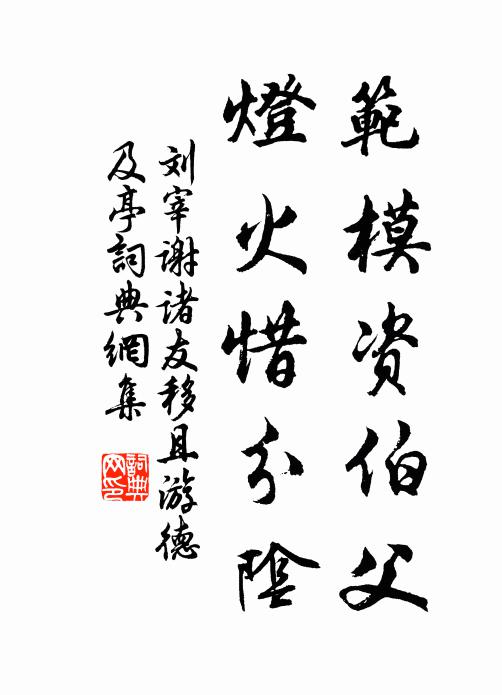 範模资伯父
燈火惜分陰
刘宰谢诸友移且游德
及亭詞典網集
詞典
网印